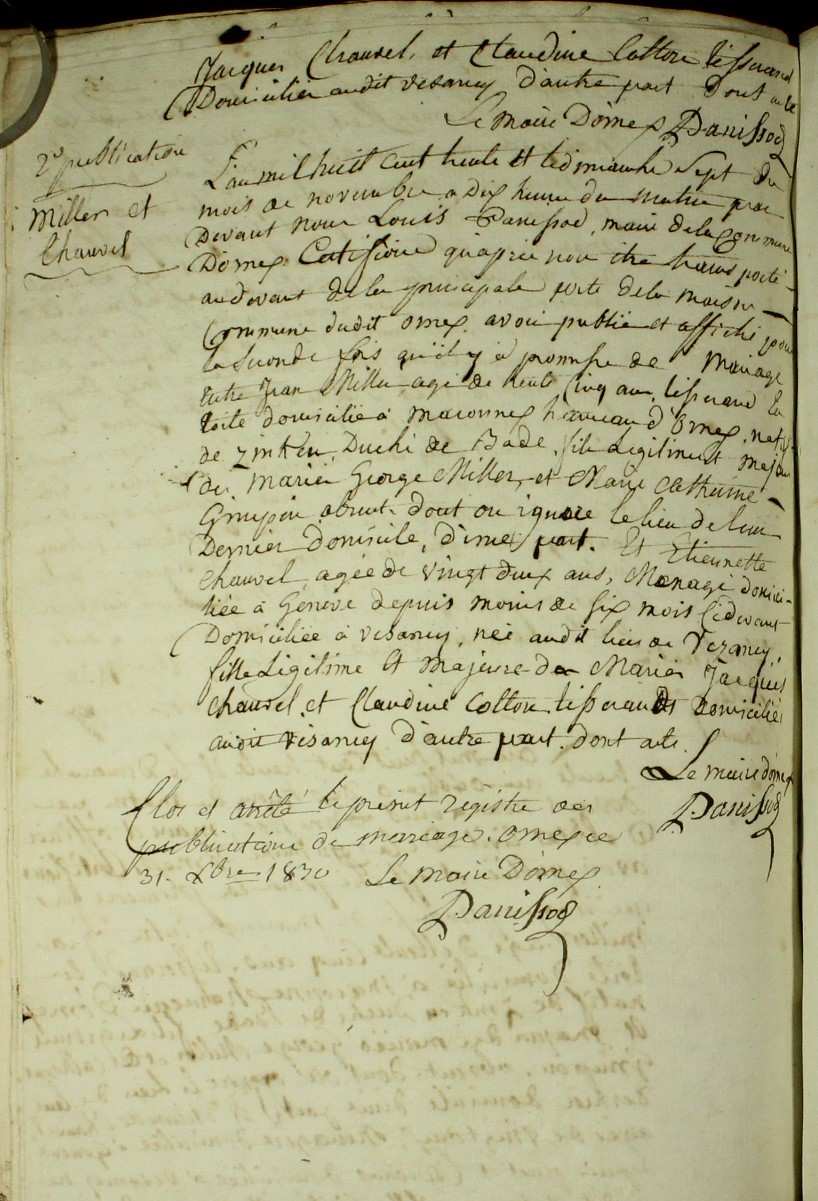 Jacques Chauvel, et Claudine Cotton tisserand
Domiciliés audit vesancy d'autre part Dont acte
Le maire Dornex Panissod
2e publication
Miller et
Chauvel
L'an mil huit cent trente et le dimanche Sept du
mois de novembre a Dix heures du matin par
Devant nous Louis Panissod, maire de la Commune
Dornex. Certifions qu'après nous être transporté
au devant de la principale porte de la maison
Commune dudit ornex avoir publié et affiché pour
la Seconde fois qu'il y a promesse de Mariage
Entre Jean Miller agé de trente Cinq ans, tisserand En
toile domicilié à maconnex hameau d'Ornex, natif
de Duché de Bade, fils Légitime et majeur
des mariés George Miller, et Marie Catherine
absent. dont on ignore le lieu de leur
Dernier Domicile, d'une part. Et Etiennette
Chauvel, agée de vingt deux ans, Ménagè domici-
liée à Genève depuis moins de Six mois Cidevant
Domiciliée à vesancy, née audit lieu de Vezancy,
fille Légitime et majeure des Mariés Jacques
Chauvel, et Claudine Cotton tisserands Domiciliés
audit vesancy d'autre part. dont acte.
Le maire dornex
Panissod
Clos et arrêté le présent régistre des
publications de mariage. ornex ce
31. Xbre 1830 Le maire Dornex
Panissod